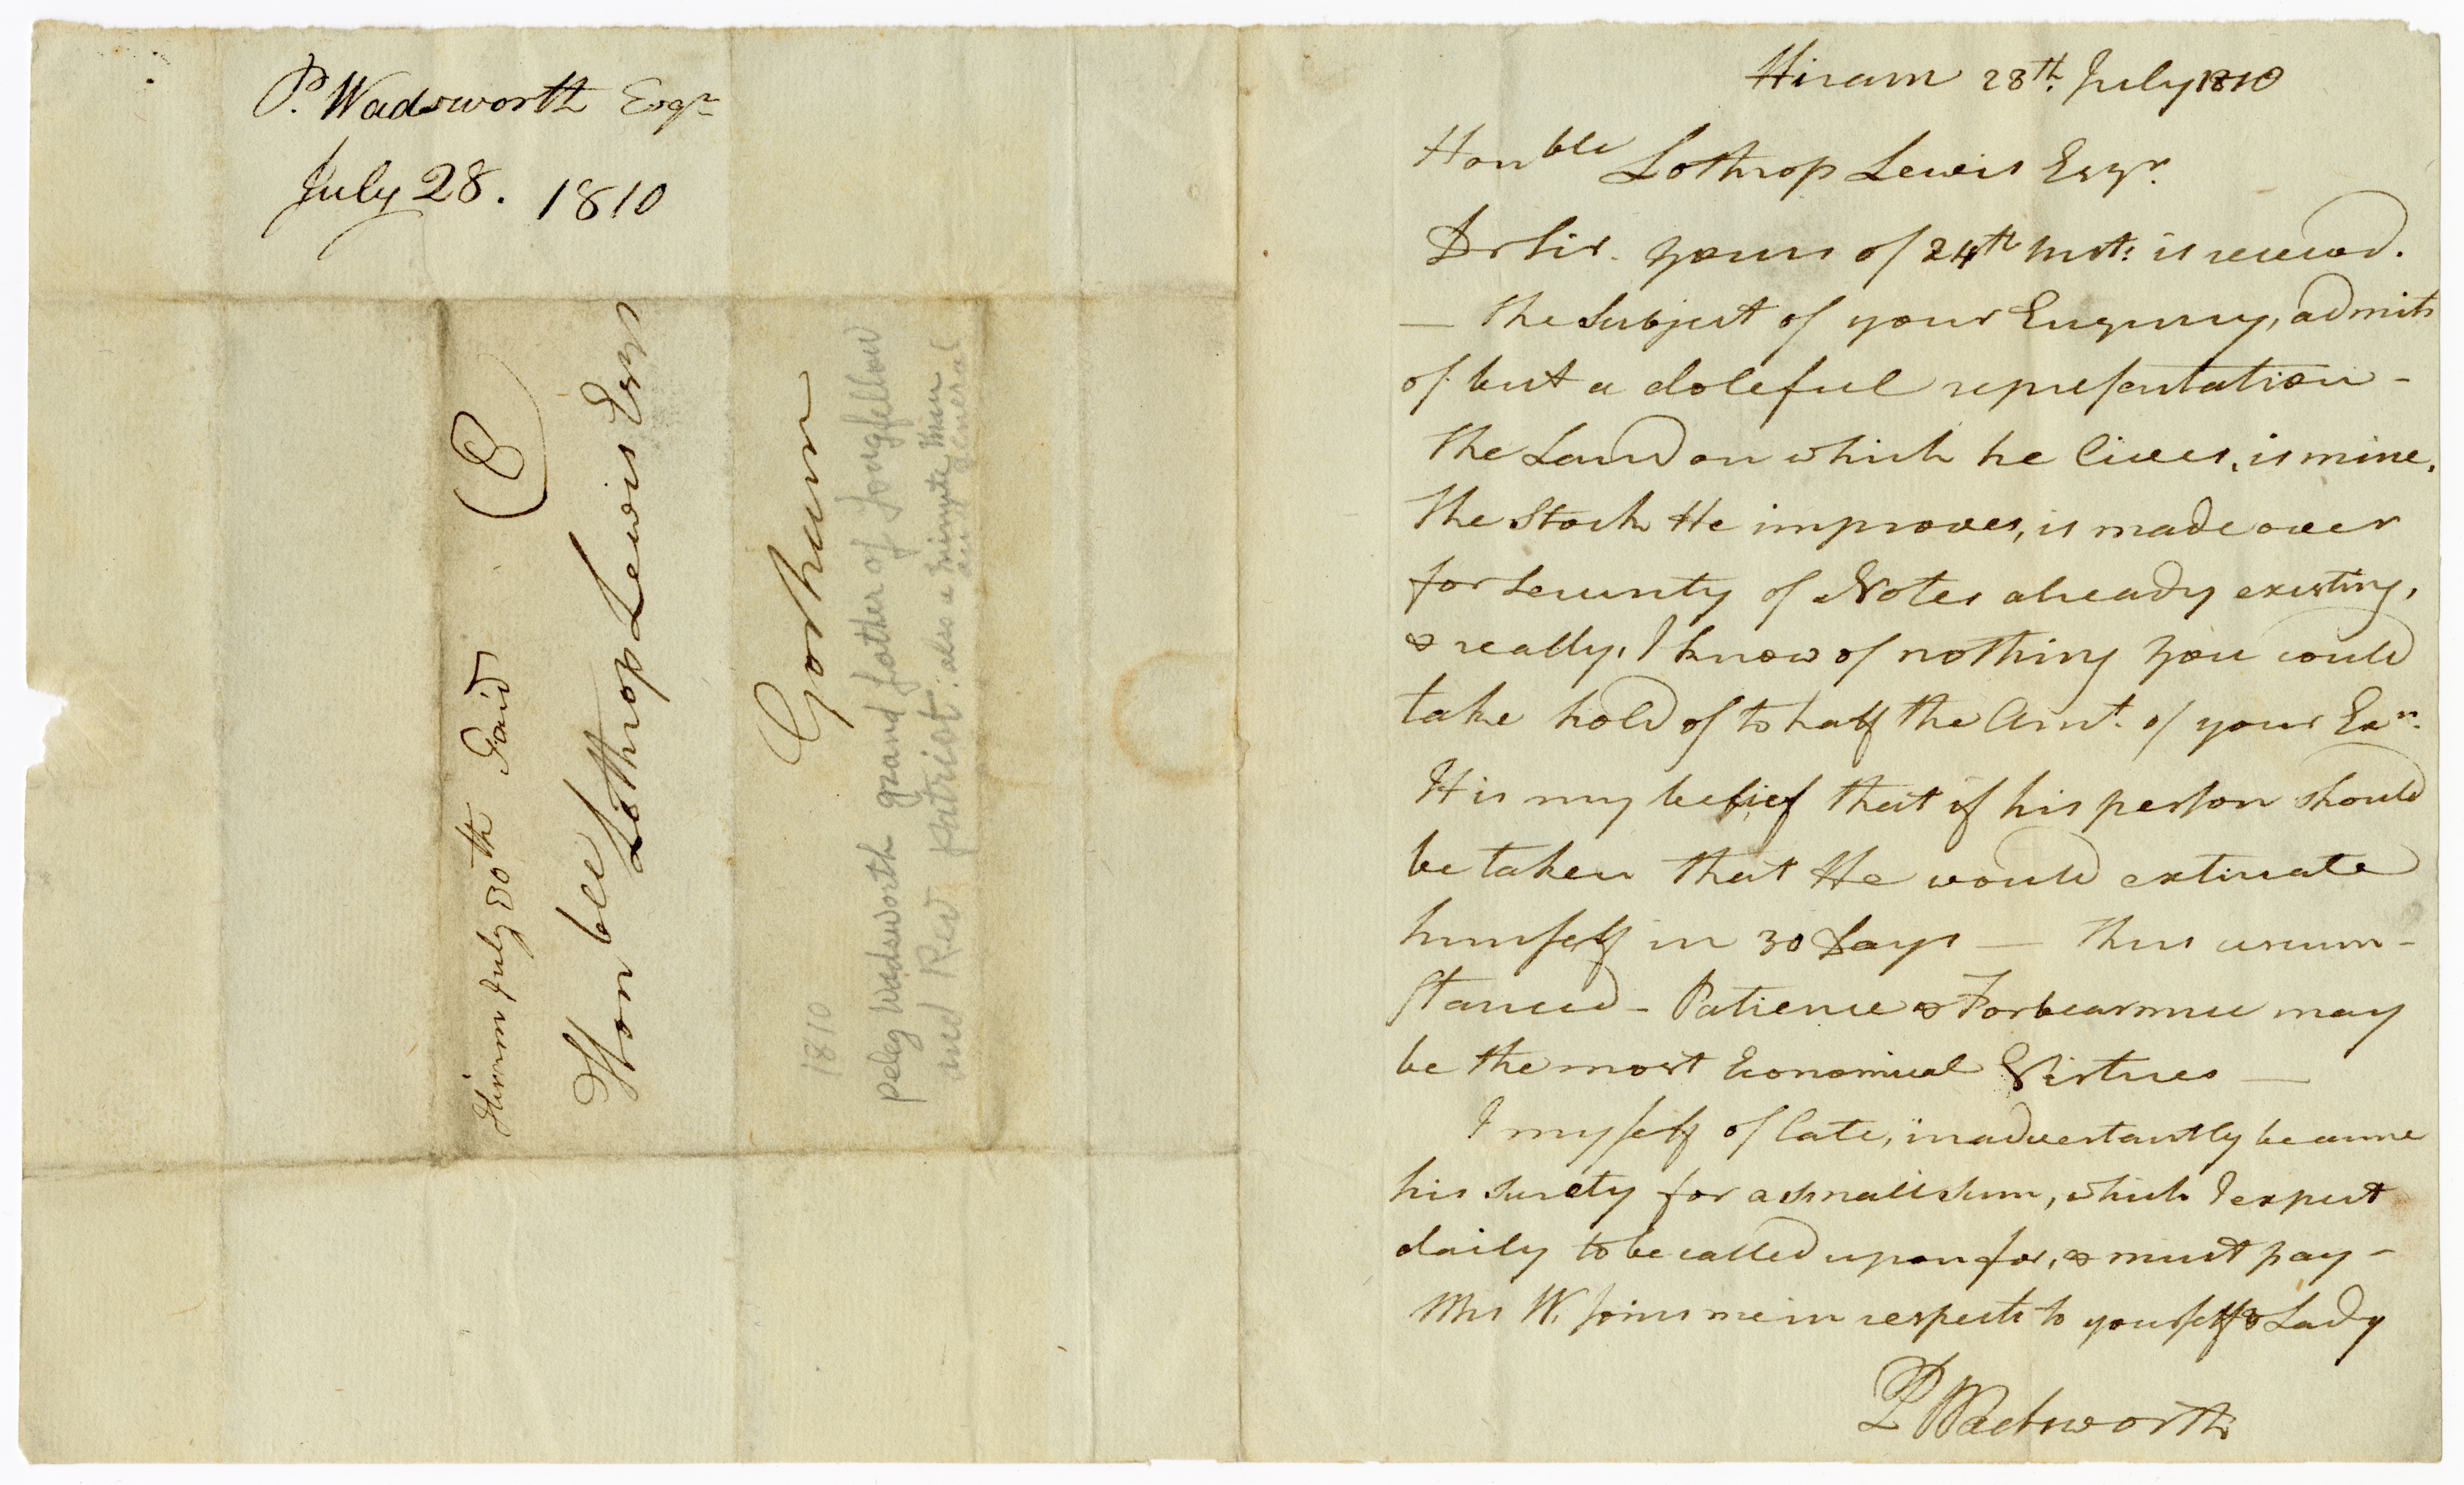 P. Wadsworth Esqr
July 28. 1810
Hiram July 30th Paid
(8)
Honble Lothrop Lewis Esqr
Gorham
1810
Peleg Wadsworth grand father of Longfellow
and Rev patriot. also a minute man
and general
Hiram 28th. July 1810
Honble Lothrop Lewis Esqr.
Dr Sir. yours of 24th Inst: is receved.
— The Subject of your Enquiry, admits
of but a doleful representation -
The Land on which he lives, is mine.
The Stock He improves, is made over
for Security of Notes already existing,
& really, I know of nothing you could
take hold of to half the Amt. of your Exn.
It is my belief that if his person should
be taken that He would extricate
himself in 30 Days — Thus circum-
stanced - Patience & Forbearance may
be the most Economical Virtues —
I myself of late, inadvertantly became
his surety for a small sum, which I expect
daily to be called upon for, & must pay -
Mrs W. joins me in respects to yourself & Lady
P Wadsworth